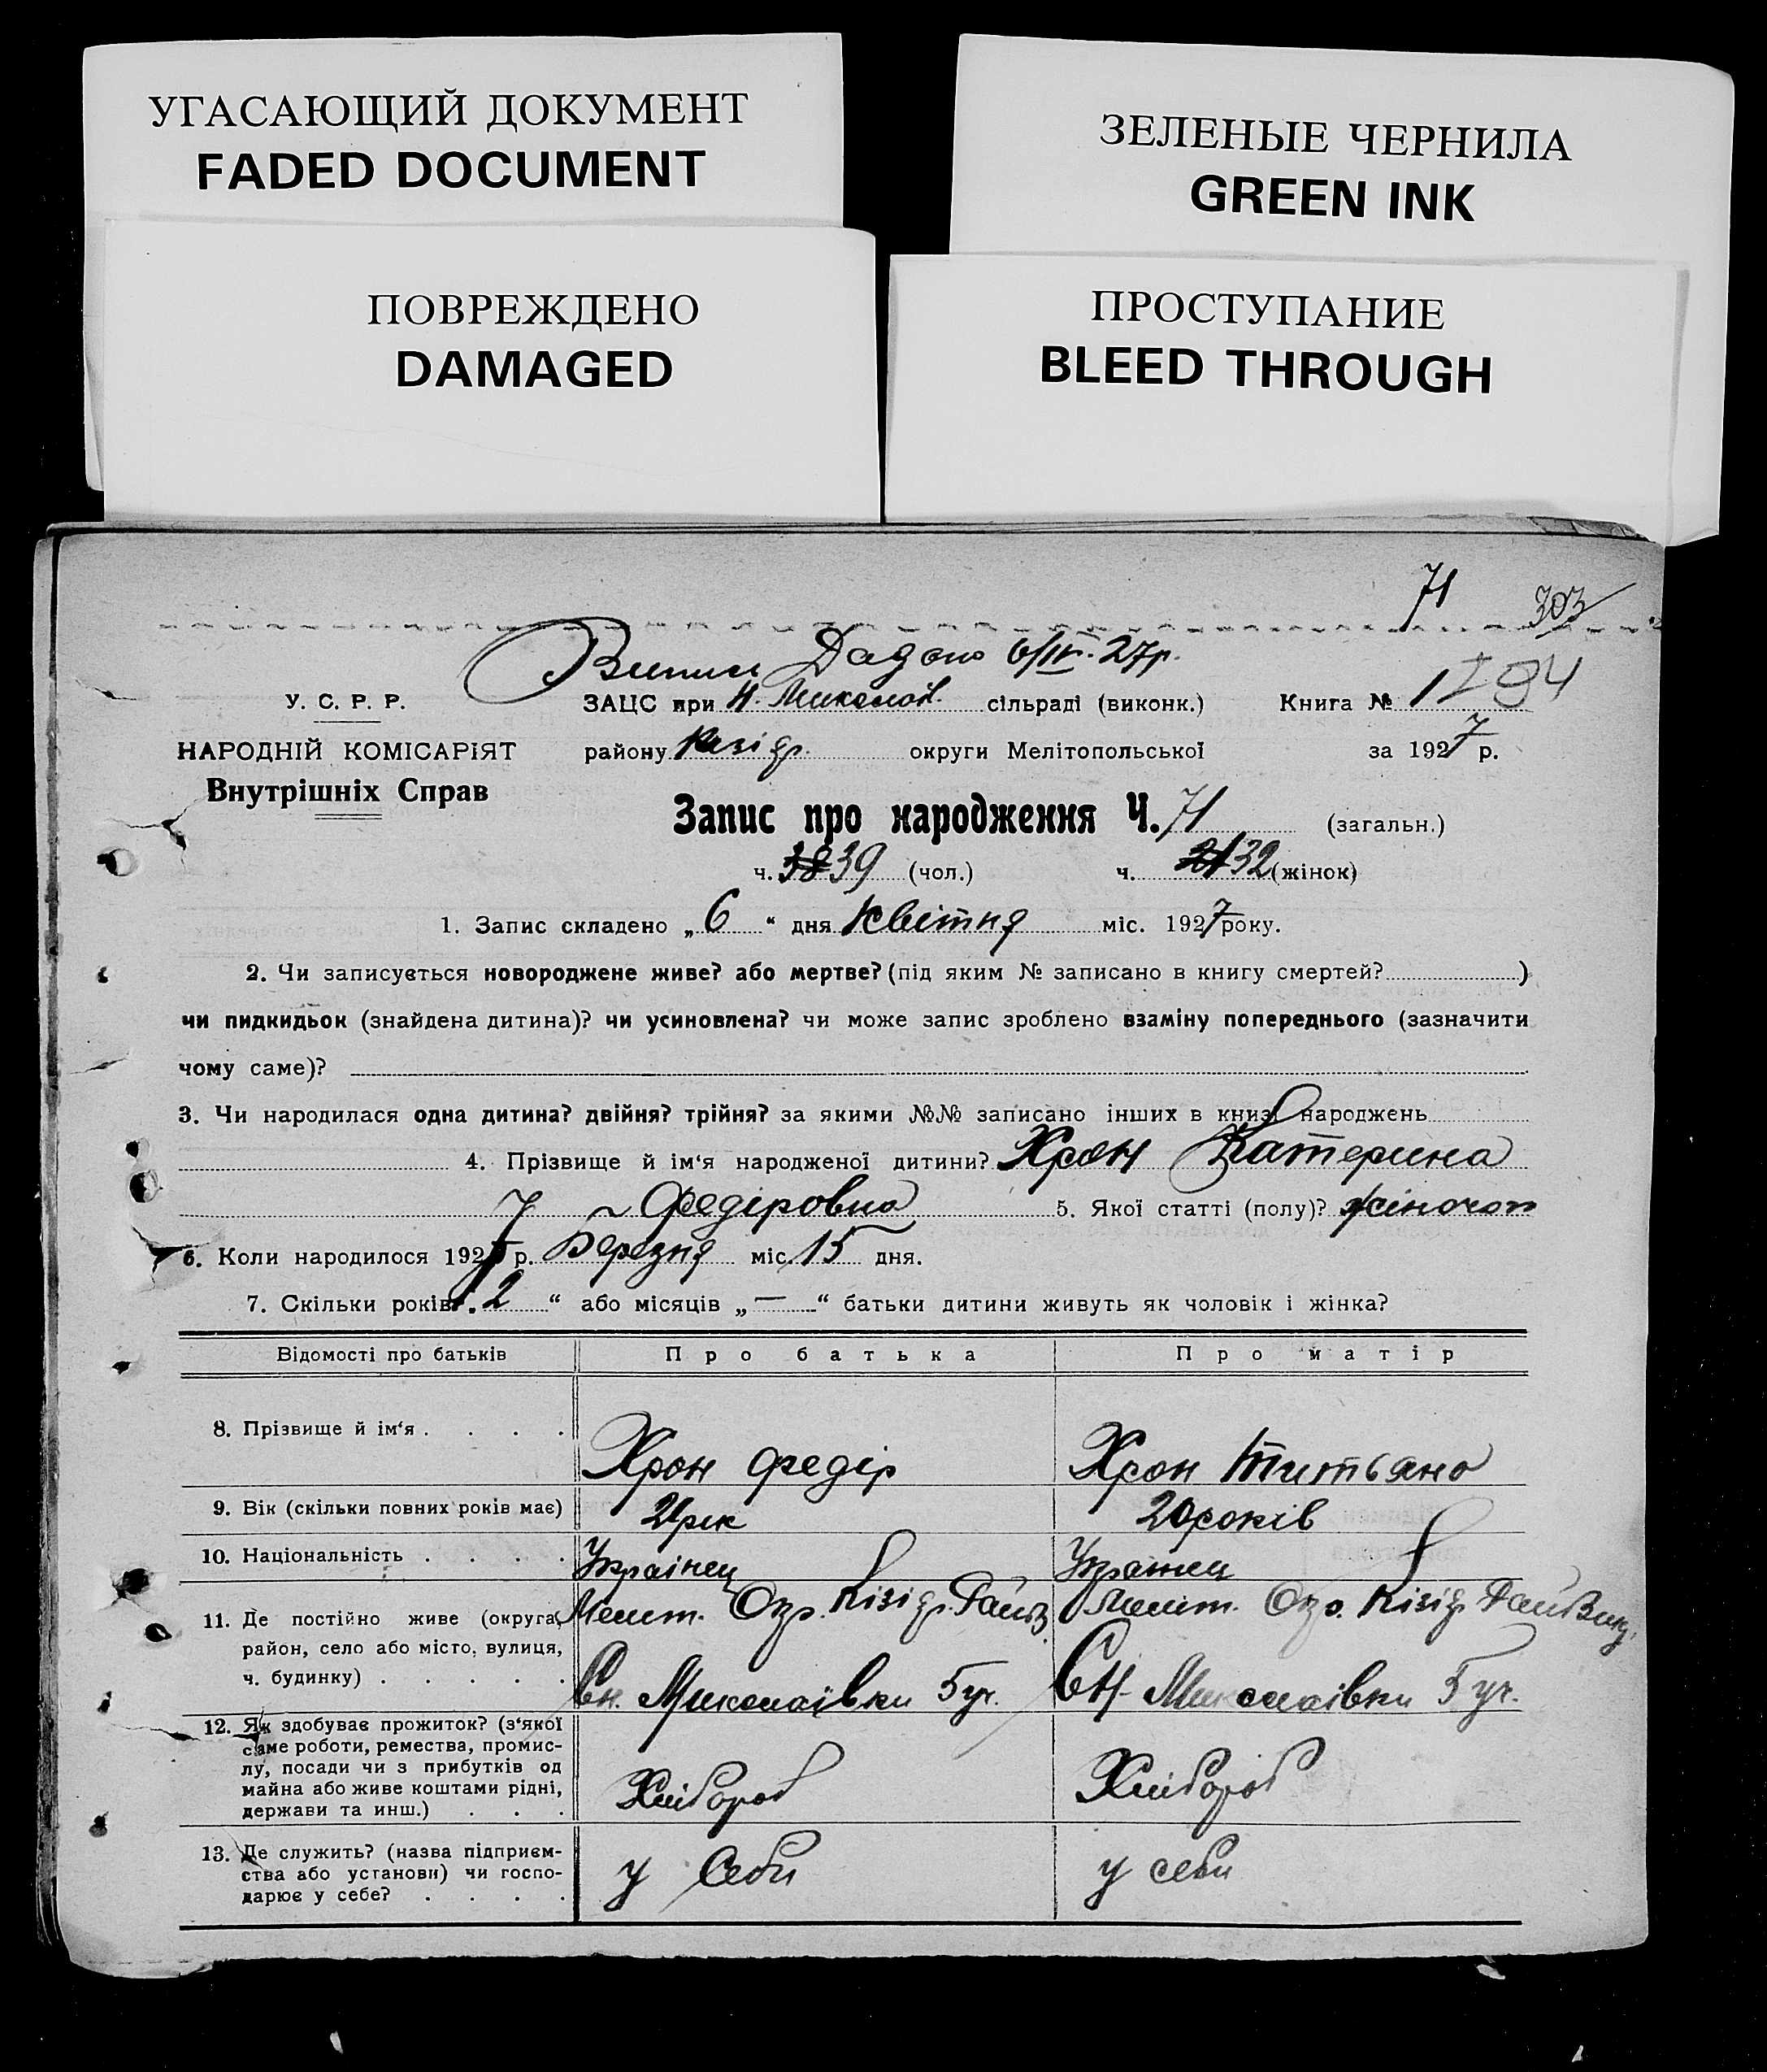 УГАСАЮЩИЙ ДОКУМЕНТ
FADED DOCUMENT
ЗЕЛЕНЫЕ ЧЕРНИЛА
GREEN INK
ПОВРЕЖДЕНО
DAMAGED
ПРОСТУПАНИЕ
BLEED THROUGH
71 303
Випис Дадано 6/IV-27р.
У. С. Р. Р.
ЗАЦС при Н. Миколаів. сільраді (виконк.) Книга № 1
НАРОДНІЙ КОМІСАРІЯТ
району Кізідр. округи Мелітопольської за 1927 р.
Внутрішніх Справ
Запис про народження Ч. 71 (загальн.)
ч. 38 39 (чол.) ч. 31 32 (жінок)
1. Запис складено „ 6 “ дня Квітня міс. 1927 року.
2. Чи записується новороджене живе? або мертве? (під яким № записано в книгу смертей? )
чи пидкидьок (знайдена дитина)? чи усиновлена? чи може запис зроблено взаміну попереднього (зазначити
чому саме)?
3. Чи народилася одна дитина? двійня? трійня? за якими №№ записано інших в книзі народжень
4. Прізвище й ім‘я народженої дитини? Хрон Катерина
Федіровна 5. Якої статті (полу)? жіночот
6. Коли народилося 1927 р. Березня міс. 15 дня.
7. Скільки років „ 2 “ або місяців „ — “ батьки дитини живуть як чоловік і жінка?
Відомості про батьків Про батька Про матір
8. Прізвище й ім‘я . . . . Хрон Федір Хрон Титьяна
9. Вік (скільки повних років має) 21 рік 20 років
10. Національність . . . . Українец Українец
11. Де постійно живе (округа, Меліт. Окр. Кізідр. Меліт. Окр. Кізідр.
район, село або місто, вулиця,
ч. будинку) . . . . . Сн. Миколаівки 5 уч. СН-Миколаівки 5 уч.
12. Як здобуває прожиток? (з‘якої
саме роботи, ремества, промис-
лу, посади чи з прибутків од
майна або живе коштами рідні, Хлібороб Хлібороб
держави та инш.) . . .
13. Де служить? (назва підприєм-
ства або установи) чи госпо- у себи у себи
дарює у себе? . . . .